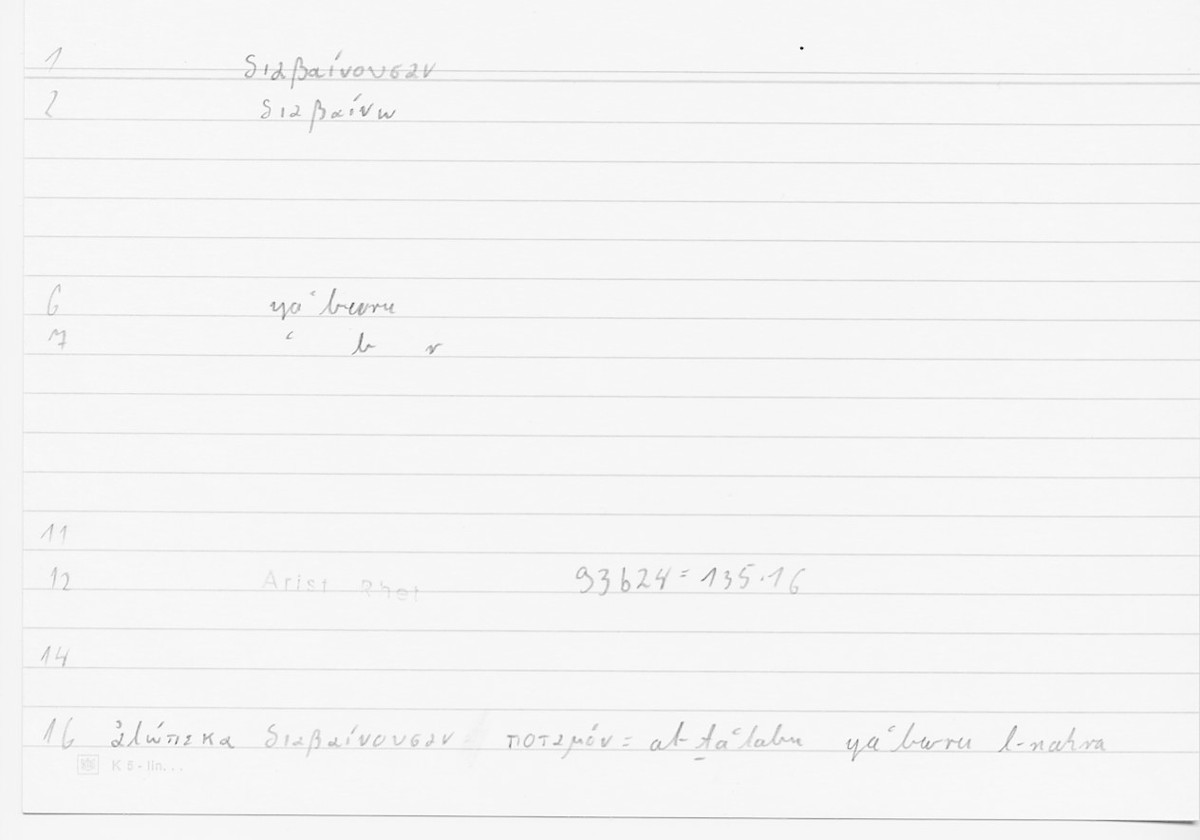 1 διαβαίνουσαν
2 διαβαίνω
6 yaʿburu
7 ʿ b r
11
12 Arist Rhet 93b24 = 135.16
14
16 ἀλώπεκα διαβαίνουσαν ποταμόν = aṯ-ṯaʿlabu yaʿburu l-nahra
K5-lin...